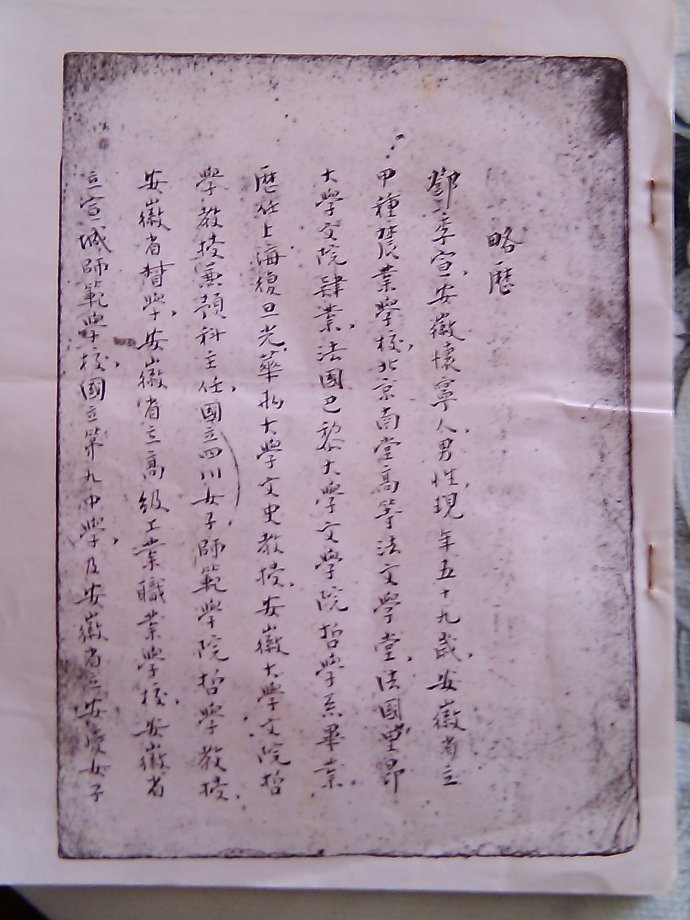 略歷
鄧季宣,安徽懷寧人,男性,現年五十九歲,安徽省立
甲種農業學校,北京南堂高等法文學堂,法國里昂
大學文院肄業,法國巴黎大學文學院哲學系畢業.
歷任上海復旦光華私大學文史教授,安徽大學文院哲
學教授兼預科主任,國立四川女子師範學院哲學教授,
安徽省督學,安徽省立高級工業職業學校,安徽省
立宣城師範學校,國立第九中學,及安徽省立安慶女子